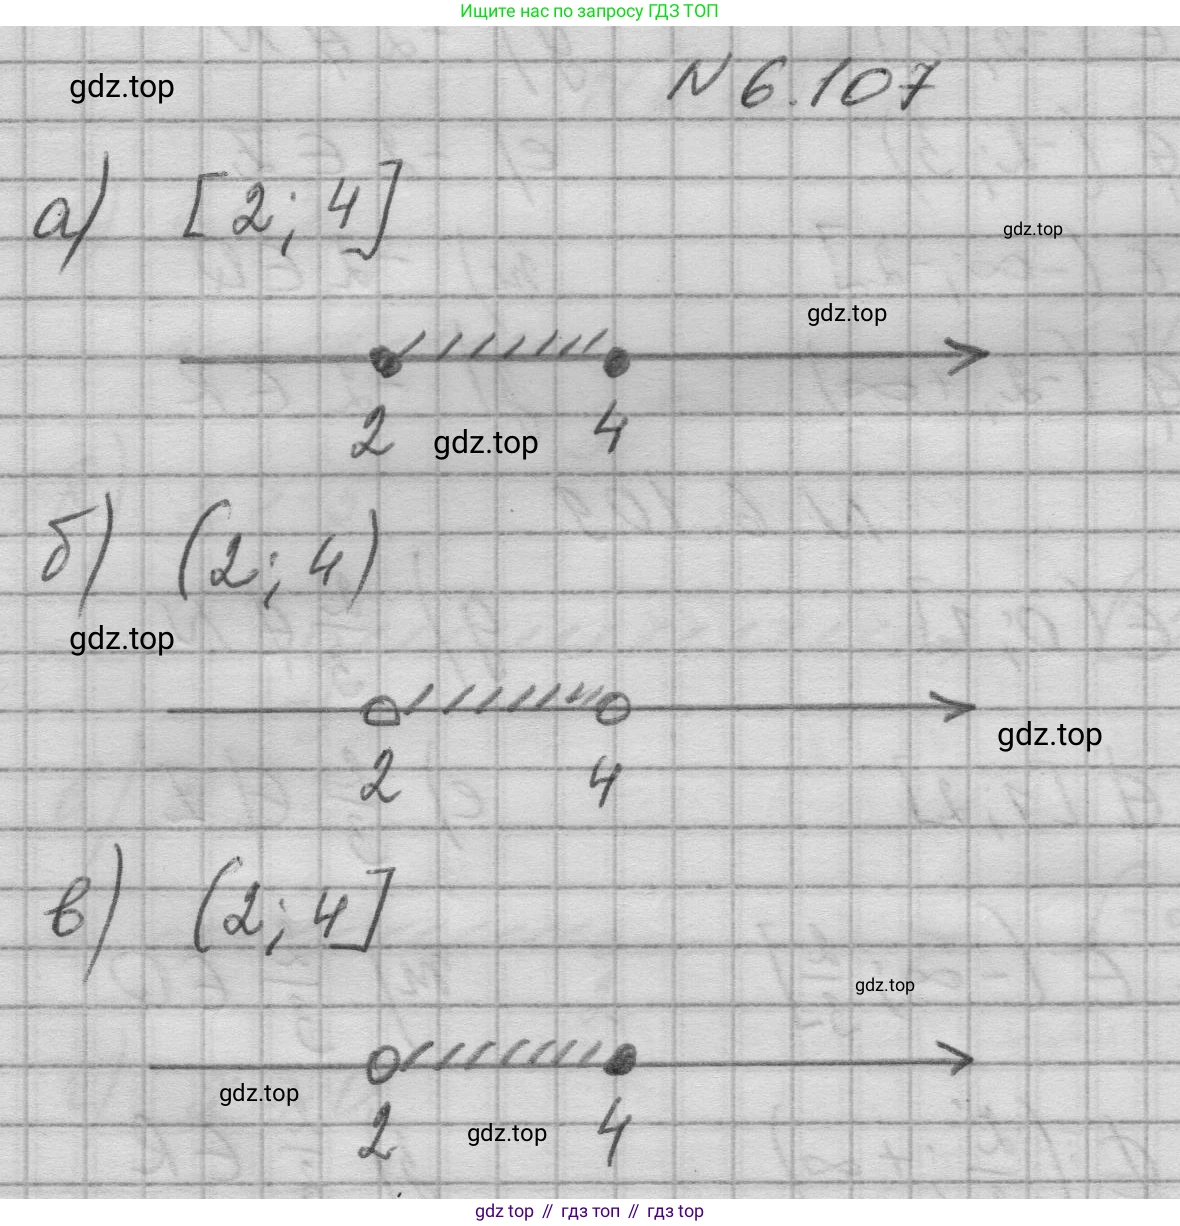 Ищите нас по запросу ГДЗ ТОП
gdz.top
N 6.107
а) [2; 4]
gdz.top
gdz.top
2 gdz.top 4
б) (2; 4)
gdz.top
gdz.top
2 4
в) (2; 4]
gdz.top
gdz.top
2 gdz.top 4
gdz top // гдз топ // гдз top